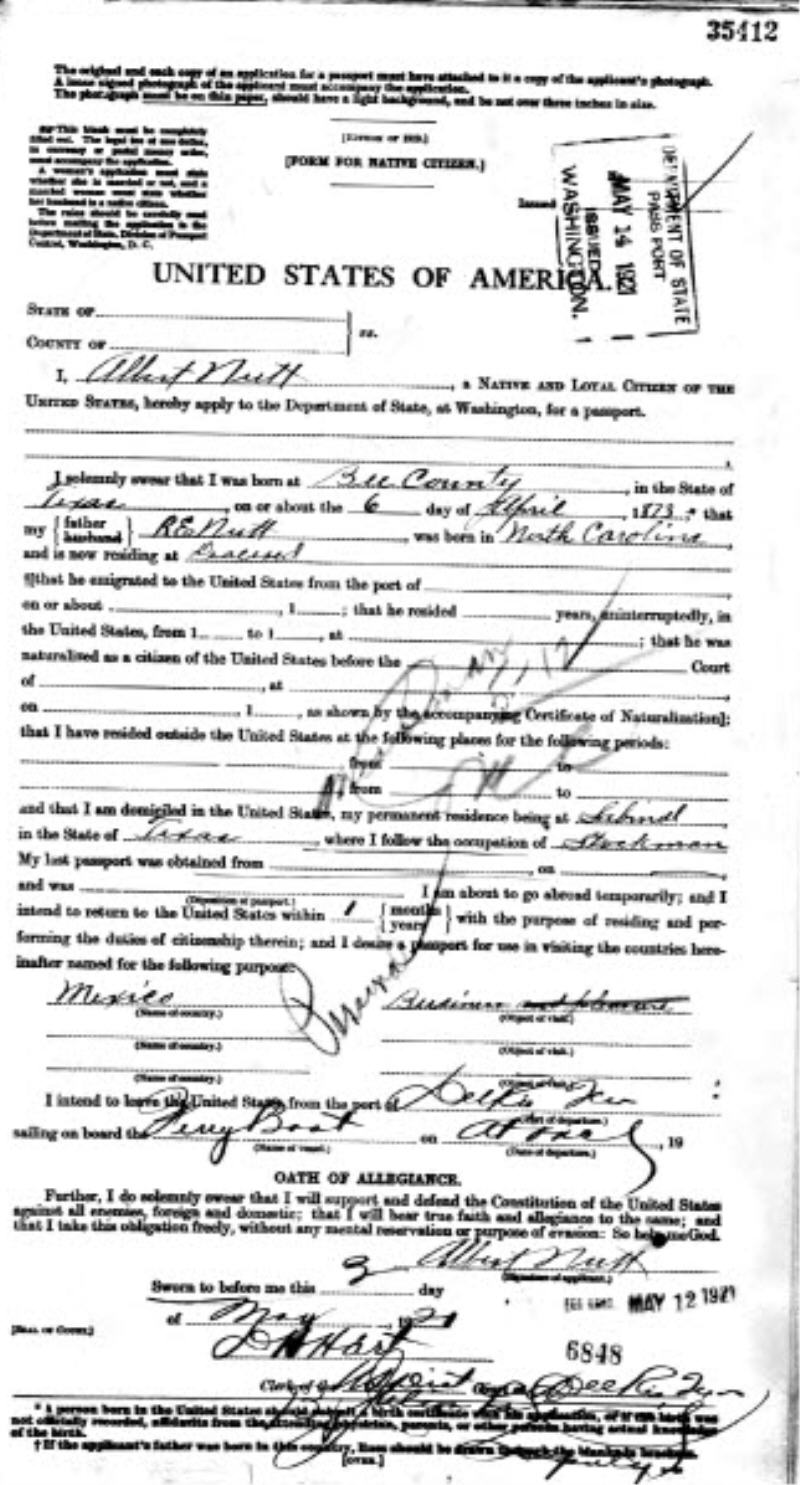 35412
The original and each copy of an application for a passport must have attached to it a copy of the applicant's photograph.
A loose signed photograph of the applicant must accompany the application.
The photograph must be on this paper, should have a light background, and be not over three inches in size.
This blank must be completely
filled out. The legal fee of
in currency or postal money order,
must accompany the application.
A woman's application must state
whether she is married or not, and a
married woman must state whether
her husband is a native citizen.
The rules should be carefully read
before mailing the application to the
Department of State, Division of Passport
Control, Washington, D. C.
[FORM FOR NATIVE CITIZEN.]
Issued
DEPARTMENT OF STATE
PASSPORT
MAY 14 1921
ISSUED
WASHINGTON.
UNITED STATES OF AMERICA.
STATE OF
COUNTY OF
ss.
I, Albert Nutt, a NATIVE AND LOYAL CITIZEN OF THE
UNITED STATES, hereby apply to the Department of State, at Washington, for a passport.
I solemnly swear that I was born at Bee County, in the State of
Texas, on or about the 6 day of April, 1873;* that
my {father husband} R E Nutt, was born in North Carolina,
and is now residing at Deceased
†[that he emigrated to the United States from the port of
on or about , 1 ; that he resided years, uninterruptedly, in
the United States, from 1 to 1 , at ; that he was
naturalized as a citizen of the United States before the Court
of , at ,
on , 1 , as shown by the accompanying Certificate of Naturalization];
that I have resided outside the United States at the following places for the following periods:
from to
from to
and that I am domiciled in the United States, my permanent residence being at Sabinal
in the State of Texas, where I follow the occupation of Stockman
My last passport was obtained from , on ,
and was I am about to go abroad temporarily; and I
(Disposition of passport.)
intend to return to the United States within 1 {months years} with the purpose of residing and per-
forming the duties of citizenship therein; and I desire a passport for use in visiting the countries here-
inafter named for the following purpose:
Mexico Business and pleasure
(Name of country.) (Object of visit.)
(Name of country.) (Object of visit.)
(Name of country.) (Object of visit.)
I intend to leave the United States from the port of Del Rio Tex
(Port of departure.)
sailing on board the Ferry Boat on At once, 19
(Name of vessel.) (Date of departure.)
OATH OF ALLEGIANCE.
Further, I do solemnly swear that I will support and defend the Constitution of the United States
against all enemies, foreign and domestic; that I will bear true faith and allegiance to the same; and
that I take this obligation freely, without any mental reservation or purpose of evasion: So help me God.
Albert Nutt
(Signature of applicant.)
Sworn to before me this 3 day
MAY 12 1921
of May, 1921
[SEAL OF COURT.]
Hart
6848
Clerk of Del Rio Tex
* A person born in the United States should submit a birth certificate with his application, or if the birth was
not officially recorded, affidavits from the attending physician, parents, or other persons having actual knowledge
of the birth.
† If the applicant's father was born in this country, lines should be drawn through the blanks in brackets.
[OVER.]